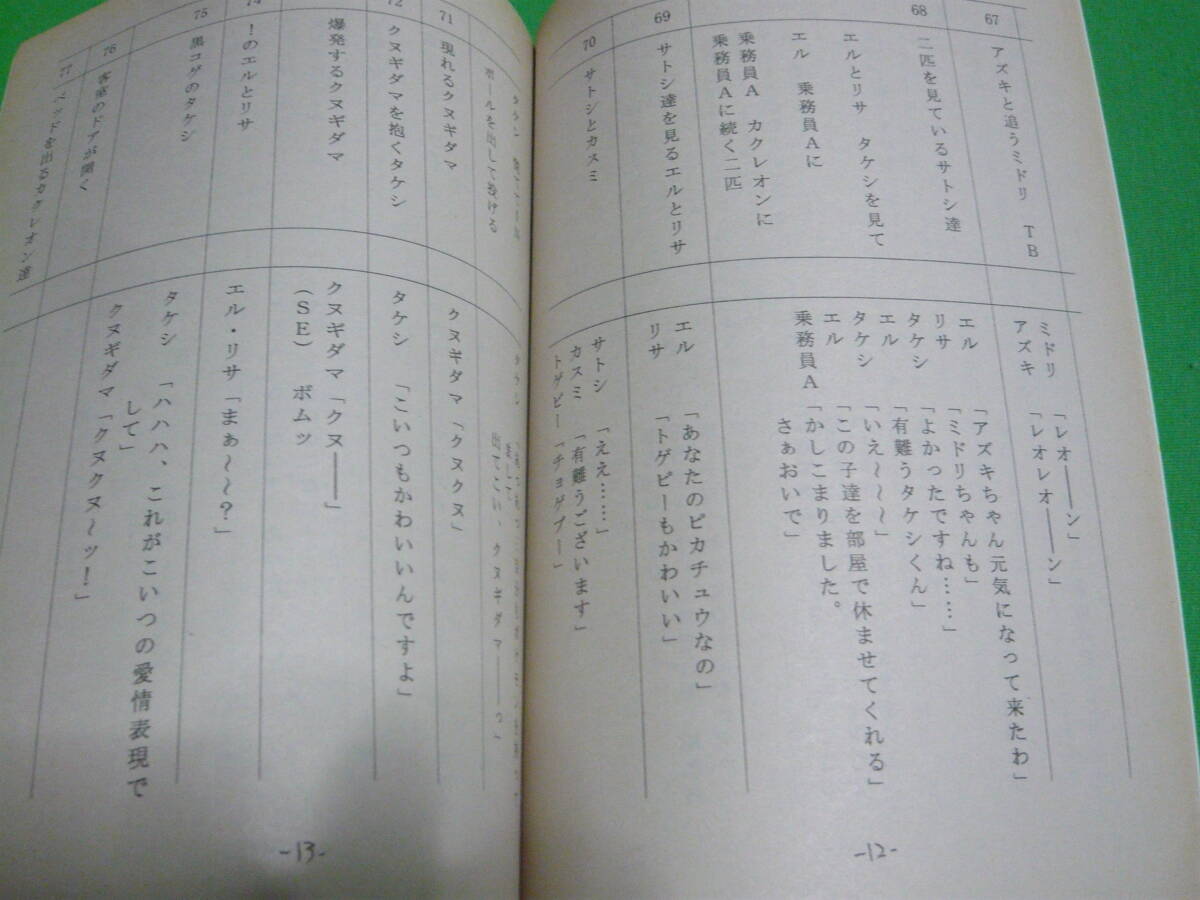 67
アズキと追うミドリ　ＴＢ
ミドリ　「レオ――ン」
アズキ　「レオレオ――ン」
68
二匹を見ているサトシ達
エルとリサ　タケシを見て
エル　乗務員Ａに
乗務員Ａ　カクレオンに
乗務員Ａに続く二匹
エル　「アズキちゃん元気になって来たわ」
リサ　「ミドリちゃんも」
タケシ　「よかったですね……」
エル　「有難うタケシくん」
タケシ　「いえ～～～」
エル　「この子達を部屋で休ませてくれる」
乗務員Ａ　「かしこまりました。
さぁおいで」
69
サトシ達を見るエルとリサ
エル　「あなたのピカチュウなの」
リサ　「トゲピーもかわいい」
70
サトシとカスミ
サトシ　「ええ……」
カスミ　「有難うございます」
トゲピー「チョゲプー」
-12-
ボールを出して投げる
出てこい、クヌギダマ――っ」
71
現れるクヌギダマ
クヌギダマ「クヌクヌ」
72
クヌギダマを抱くタケシ
タケシ　「こいつもかわいいんですよ」
爆発するクヌギダマ
クヌギダマ「クヌ――」
（ＳＥ）　ボムッ
74
！のエルとリサ
エル・リサ「まぁ～～～？」
75
黒コゲのタケシ
タケシ　「ハハハ、これがこいつの愛情表現で
して」
クヌギダマ「クヌクヌ～ッ！」
76
客室のドアが開く
77
ベッドを出るカクレオン達
-13-